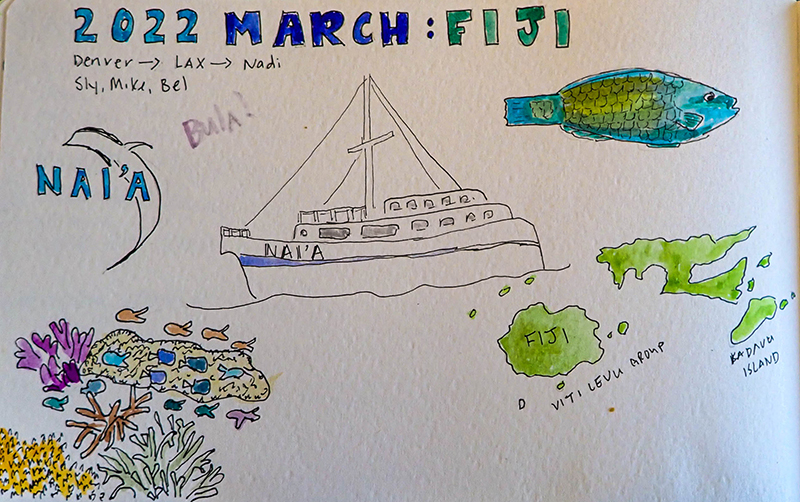 2022 MARCH: FIJI
Denver → LAX → Nadi
Sly, Mike, Bel
BULA!
NAI'A
NAI'A
FIJI
VITI LEVU GROUP
KADAVU
ISLAND
D